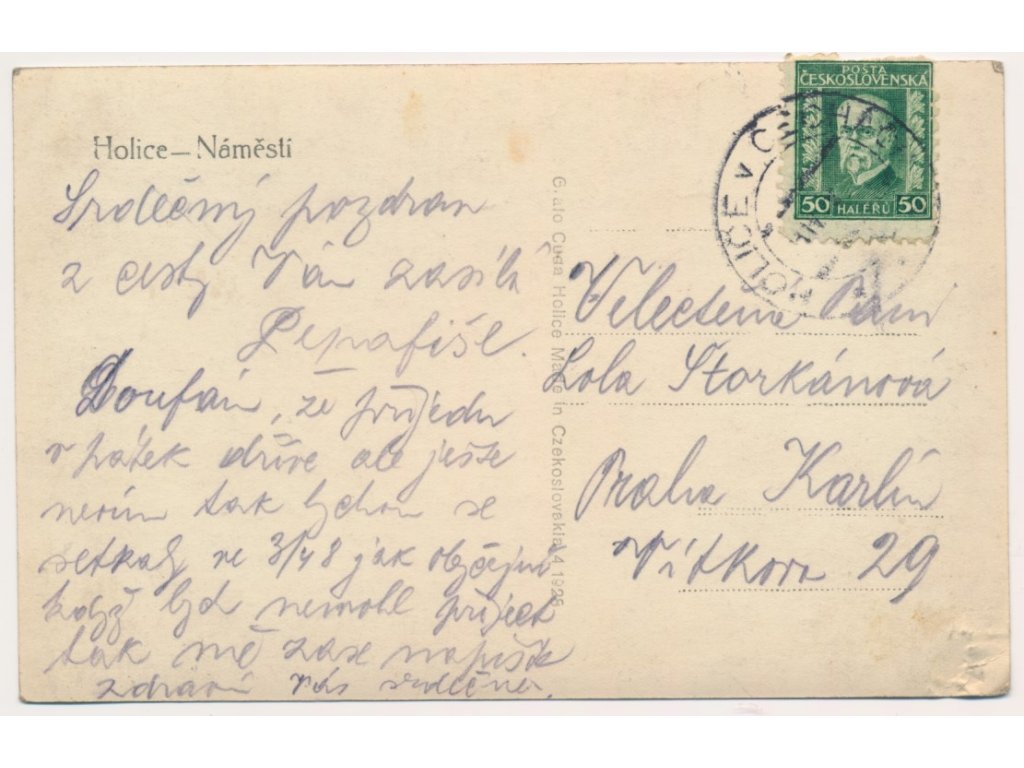 Holice – Náměstí
Srdečný pozdrav
z cesty Vám zasílá
Doufám, že přijedu
v pátek dříve ale ještě
nevím tak bychom se
setkaly ve 3/48 jak obyčejně
když bych nemohl přijet
tak mě zase napište
zdraví vás srdečně
Cuda Holice Made in Czekoslovakia
POŠTA
ČESKOSLOVENSKÁ
50 HALÉŘŮ 50
HOLICE V ČECHÁCH
Velectěná Paní
Lola Štorkánová
Praha Karlín
Vítkova 29